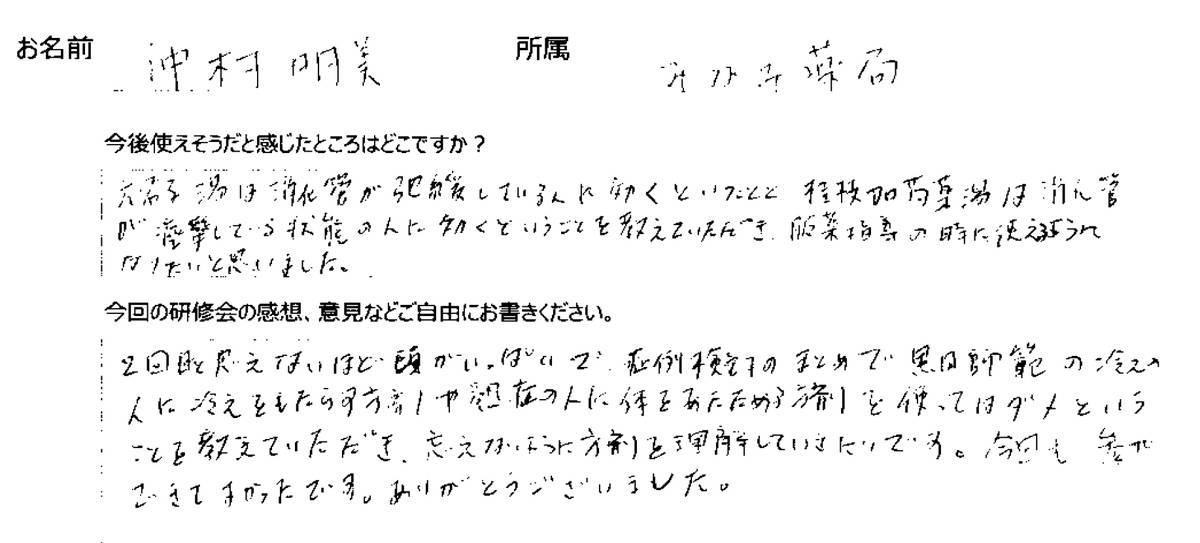 お名前 沖村明美 所属 薬局
今後使えそうだと感じたところはどこですか?
湯は消化管が弛緩している人に効くということと 桂枝加芍薬湯は消化管
が痙攣している状態の人に効くということを教えていただき、服薬指導の時に使えるように
なりたいと思いました。
今回の研修会の感想、意見などご自由にお書きください。
2回目と思えないほど頭がいっぱいで、症例検討のまとめで 師範の冷えの
人に冷えをもたらす方剤や 症の人に体をあたためる方剤を使ってはダメという
ことを教えていただき、忘えないように方剤を理解していきたいです。今回も参加
できてよかったです。ありがとうございました。